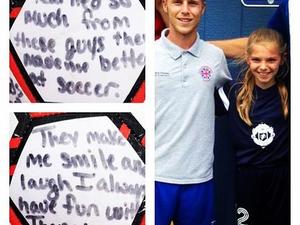 so
much from
these guys they
made me better
at soccer.
They make
me smile and
laugh I always
have fun with
2